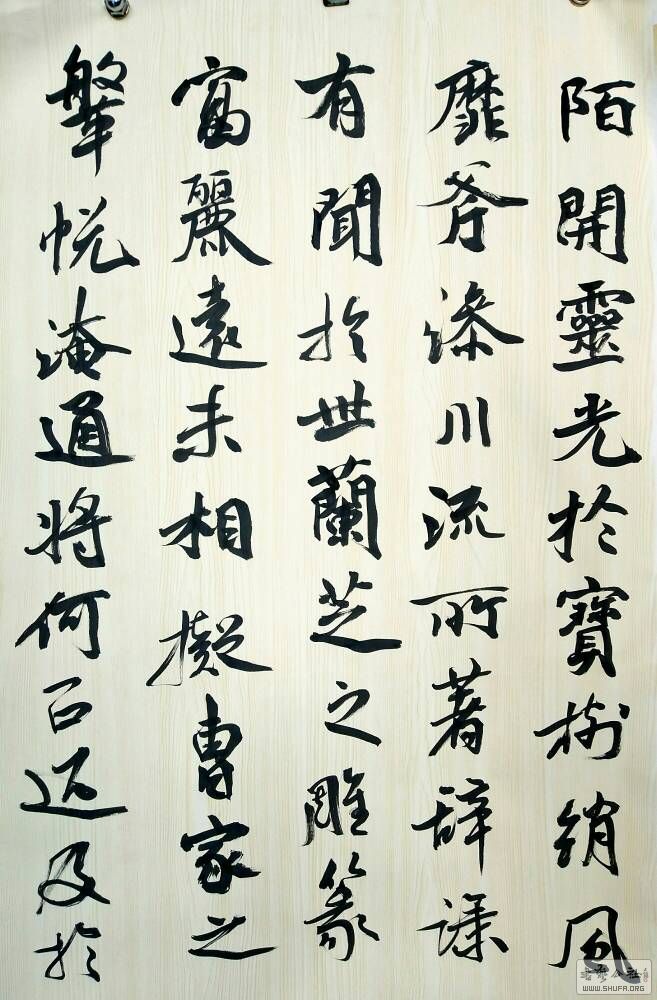 陌開靈光於寶樹銷風
靡川流所著辞謀
有聞於世蘭芝之雕篆
富麗遠未相擬曹家之
鞶帨淹通將何及於
WWW.SHUFA.ORG